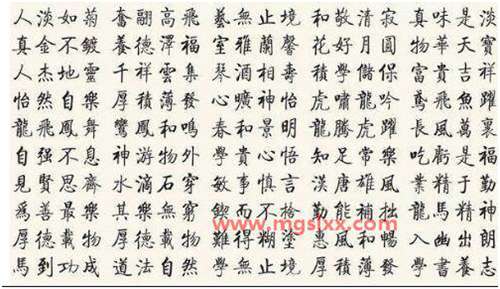 人淡如菊 奮翮高飛 藝無止境 和敬清寂 真味是淡
真金不鍍 養德澤福 室雅蘭馨 花好月圓 物華天寶
人杰地靈 千祥雲集 琴酒相壽 學儲保 富貴吉祥
怡然自樂 厚積薄發 曠神怡 虎嘯龍吟 鳶飛魚躍
龍飛鳳舞 鸞鳳和鳴 春和景明 龍騰虎躍 長風萬裏
自强不息 神游物外 學貴心悟 知足常樂 吃虧是福
見賢思齊 水滴石穿 敏事慎言 漢唐雄風 業精于勤
爲善最樂 其樂無窮 而不捨 勤能補拙 龍馬精神
厚德載物 厚德載物 難得糊塗 惠風和暢 入幽出朗
馬到功成 道法自然 學無止境 厚積薄發 學書養志
www.mgslxx.com